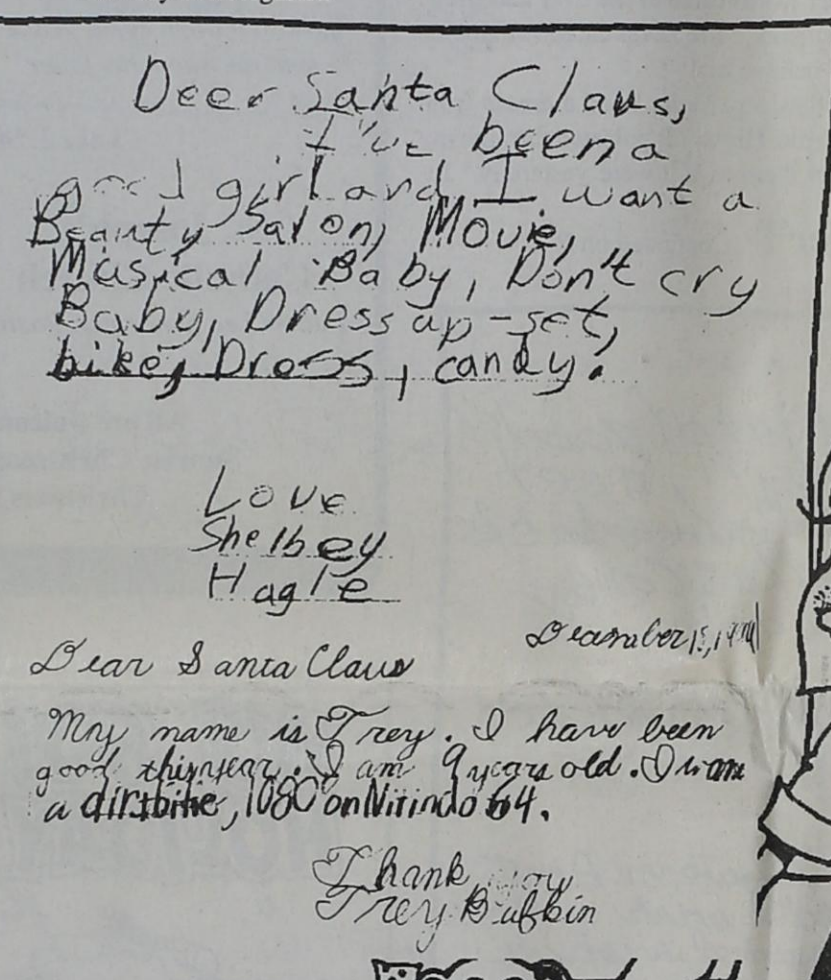 Deer Santa Claus,
I've been a
good girl and I want a
Beauty Salon, Movie,
Musical Baby, Don't cry
Baby, Dress up-set,
bike, Dress, candy.
Love
Shelbey
Hagle
December 15,
Dear Santa Claus
My name is Trey. I have been
good this year. I am 9 years old. I want
a dirtbike, 1080 on Nitindo 64.
Thank you
Trey Bufkin